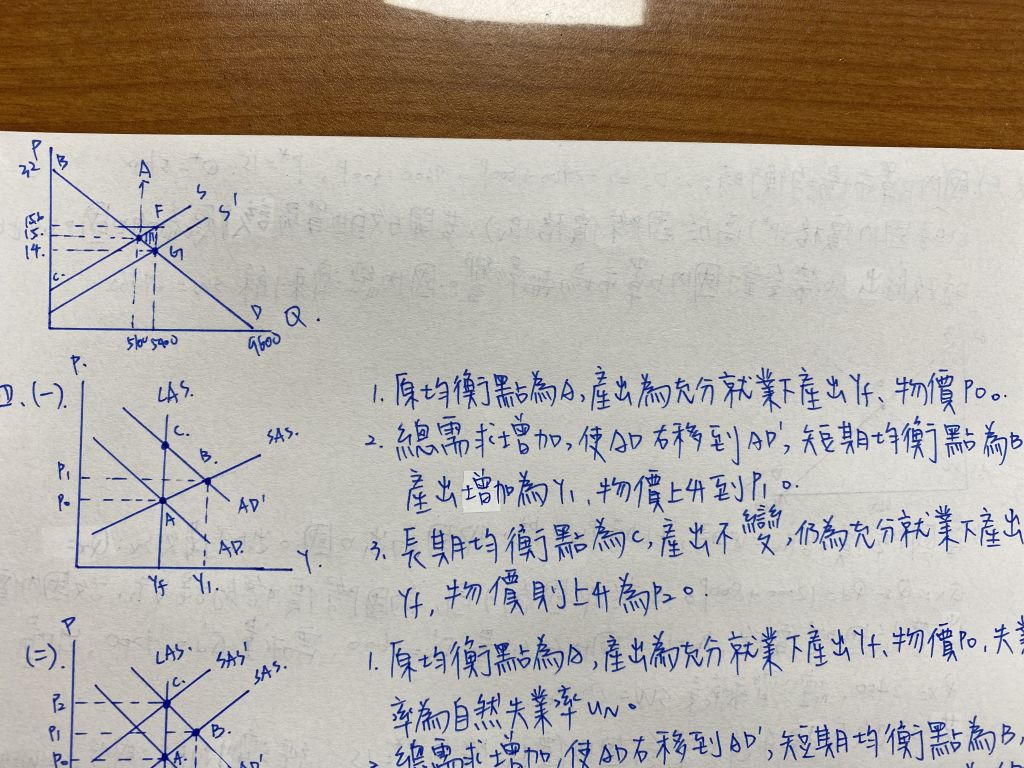 P
32
B
A
S
S'
F
15.
14.
G
C.
D
Q.
5100
5400
9600
P.
II.(一).
LAS.
C.
SAS.
B.
P1
P0
A
AD'
AD.
Y.
Yf
Y1.
1. 原均衡點為A,產出為充分就業下產出Yf、物價P0。
2. 總需求增加,使AD右移到AD',短期均衡點為B
產出增加為Y1、物價上升到P1。
3. 長期均衡點為C,產出不變,仍為充分就業下產出
Yf,物價則上升為P2。
P
(二).
LAS.
SAS'
SAS.
C.
P2
P1
B.
P0
A.
AD'
1. 原均衡點為A,產出為充分就業下產出Yf、物價P0,失業
率為自然失業率UN。
總需求增加,使AD右移到AD',短期均衡點為B,